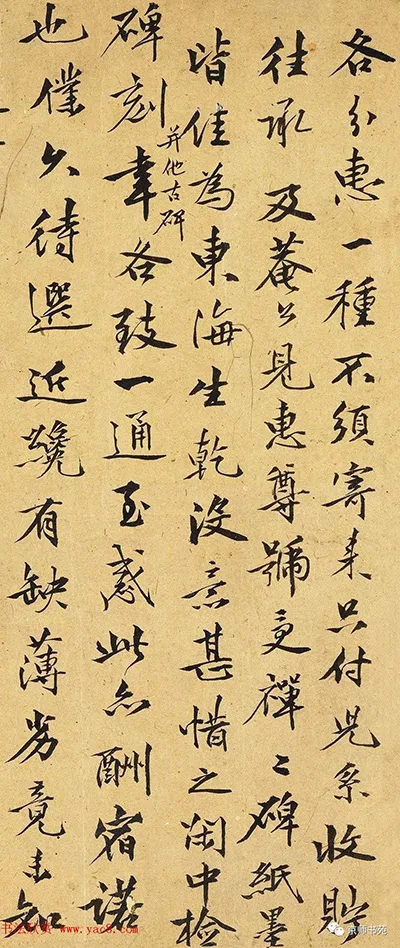 各分惠一種不須寄來只付兒系收貯
往承及菴公見惠尊號受禪二碑紙墨
皆佳為東海生乾沒意甚惜之閑中檢
碑刻并他古碑幸各致一通至感此亦酬宿諾
也僕久待選近纔有缺薄劣竟未知
书法欣赏 www.yac8.com
京师书苑